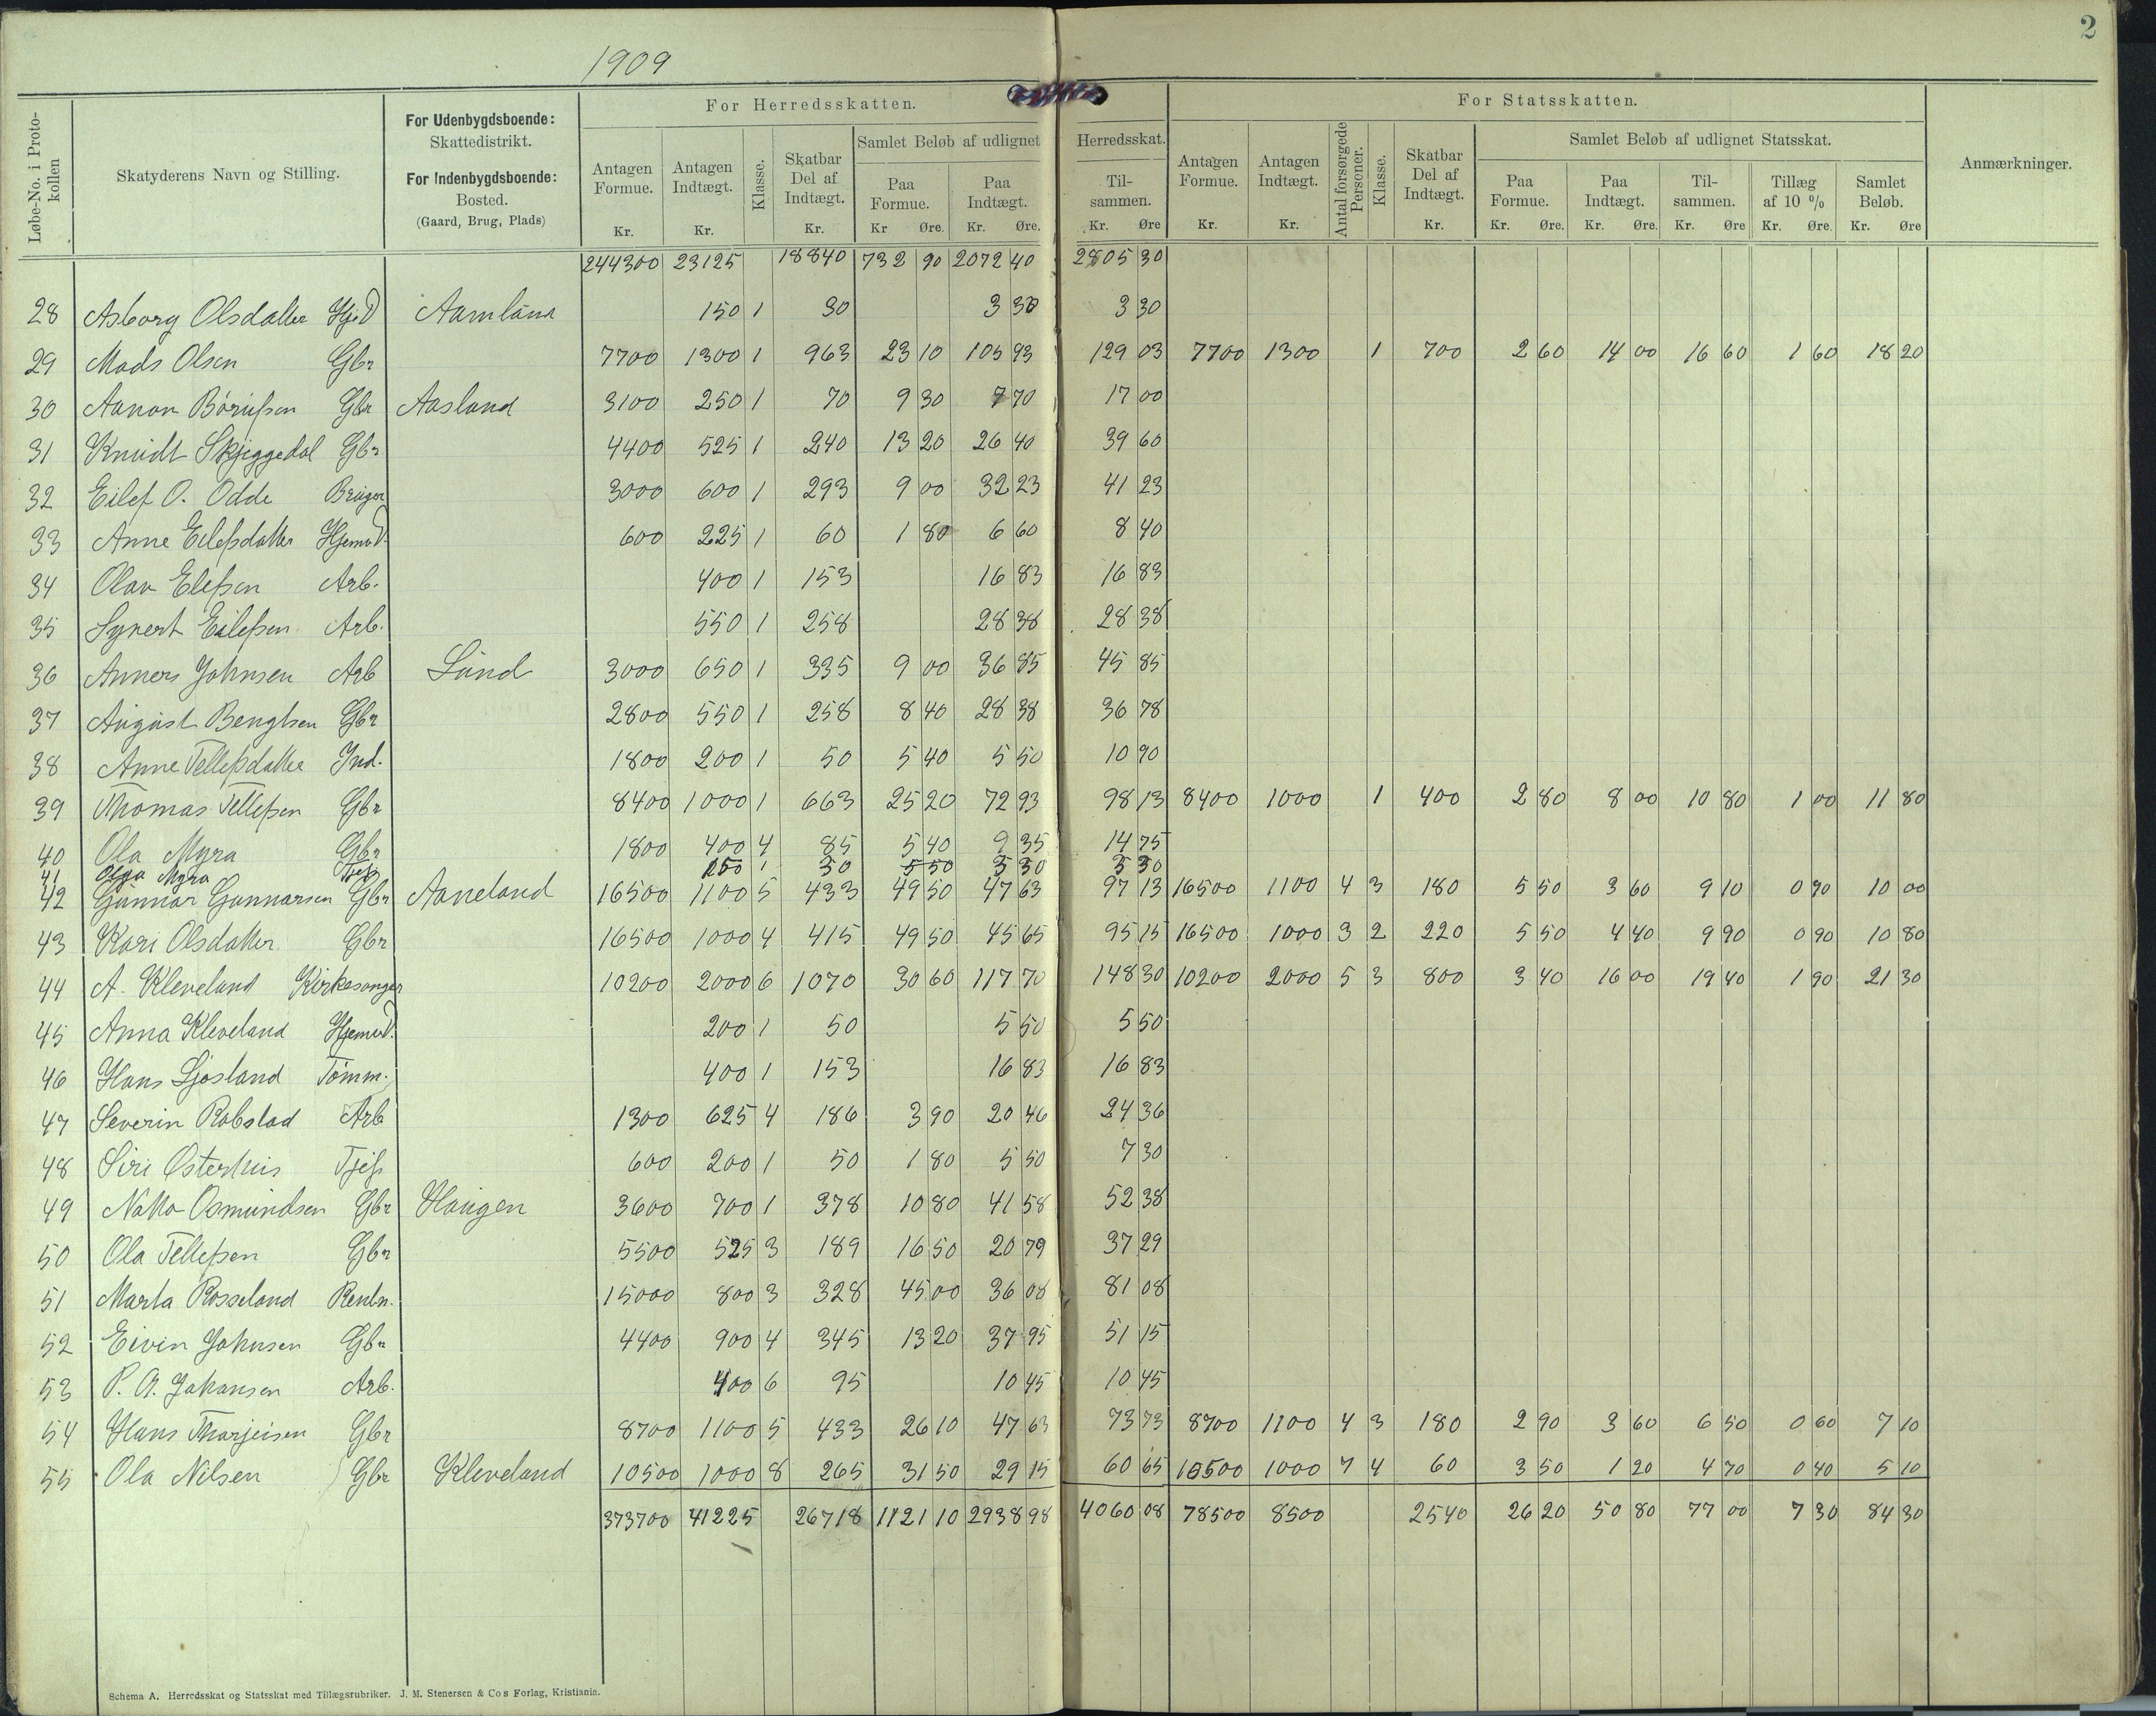 2
1909
Løbe-No. i Protokollen
Skatyderens Navn og Stilling.
For Udenbygdsboende: Skattedistrikt. For Indenbygdsboende: Bosted. (Gaard, Brug, Plads)
For Herredsskatten.
Antagen Formue. Kr.
Antagen Indtægt. Kr.
Klasse.
Skatbar Del af Indtægt. Kr.
Samlet Beløb af udlignet Herredsskat.
Paa Formue. Kr Øre.
Paa Indtægt. Kr. Øre.
Tilsammen. Kr. Øre
For Statsskatten.
Antagen Formue. Kr.
Antagen Indtægt. Kr.
Antal forsørgede Personer.
Klasse.
Skatbar Del af Indtægt. Kr.
Samlet Beløb af udlignet Statsskat.
Paa Formue. Kr. Øre.
Paa Indtægt. Kr. Øre.
Tilsammen. Kr. Øre
Tillæg af 10 % Kr. Øre.
Samlet Beløb. Kr. Øre
Anmærkninger.
244300 23125 18840 732 90 2072 40 2805 30
28 Asborg Olsdatter Hj.d Aamland 150 1 30 3 30 3 30
29 Mads Olsen Gbr 7700 1300 1 963 23 10 105 93 129 03 7700 1300 1 700 2 60 14 00 16 60 1 60 18 20
30 Aanon Børufsen Gbr Aasland 3100 250 1 70 9 30 7 70 17 00
31 Knudt Skjeggedal Gbr 4400 525 1 240 13 20 26 40 39 60
32 Eilef O. Odde Bruger 3000 600 1 293 9 00 32 23 41 23
33 Anne Eilefsdatter Hjemd. 600 225 1 60 1 80 6 60 8 40
34 Olav Elefsen Arb. 400 1 153 16 83 16 83
35 Synert Eilefsen Arb. 550 1 258 28 38 28 38
36 Anners Johnsen Arb Lund 3000 650 1 335 9 00 36 85 45 85
37 August Bengtsen Gbr 2800 550 1 258 8 40 28 38 36 78
38 Anne Tellefsdatter Ind. 1800 200 1 50 5 40 5 50 10 90
39 Thomas Tellefsen Gbr 8400 1000 1 663 25 20 72 93 98 13 8400 1000 1 400 2 80 8 00 10 80 1 00 11 80
40 Ola Myra Gbr 1800 400 4 85 5 40 9 35 14 75
41 Olga Myra Tjen 150 1 30 5 50 3 30 3 30
42 Gunnar Gunnarsen Gbr Aaneland 16500 1100 5 433 49 50 47 63 97 13 16500 1100 4 3 180 5 50 3 60 9 10 0 90 10 00
43 Kari Olsdatter Gbr 16500 1000 4 415 49 50 45 65 95 15 16500 1000 3 2 220 5 50 4 40 9 90 0 90 10 80
44 A. Kleveland Kirkesanger 10200 2000 6 1070 30 60 117 70 148 30 10200 2000 5 3 800 3 40 16 00 19 40 1 90 21 30
45 Anna Kleveland Hjemd. 200 1 50 5 50 5 50
46 Hans Ljosland Tømm. 400 1 153 16 83 16 83
47 Severin Robstad Arb 1300 625 4 186 3 90 20 46 24 36
48 Siri Østerhus Tjen 600 200 1 50 1 80 5 50 7 30
49 Osmundsen Gbr Haugen 3600 700 1 378 10 80 41 58 52 38
50 Ola Tellefsen Gbr 5500 525 3 189 16 50 20 79 37 29
51 Marta Rosseland Rentn. 15000 800 3 328 45 00 36 08 81 08
52 Eivin Johnsen Gbr 4400 900 4 345 13 20 37 95 51 15
53 P. A. Johansen Arb. 400 6 95 10 45 10 45
54 Hans Thorjeisen Gbr 8700 1100 5 433 26 10 47 63 73 73 8700 1100 4 3 180 2 90 3 60 6 50 0 60 7 10
55 Ola Nilsen Gbr Kleveland 10500 1000 8 265 31 50 29 15 60 65 10500 1000 7 4 60 3 50 1 20 4 70 0 40 5 10
373700 41225 26718 1121 10 2938 98 4060 08 78500 8500 2540 26 20 50 80 77 00 7 30 84 30
Schema A. Herredsskat og Statsskat med Tillægsrubriker. J. M. Stenersen & Cos Forlag, Kristiania.